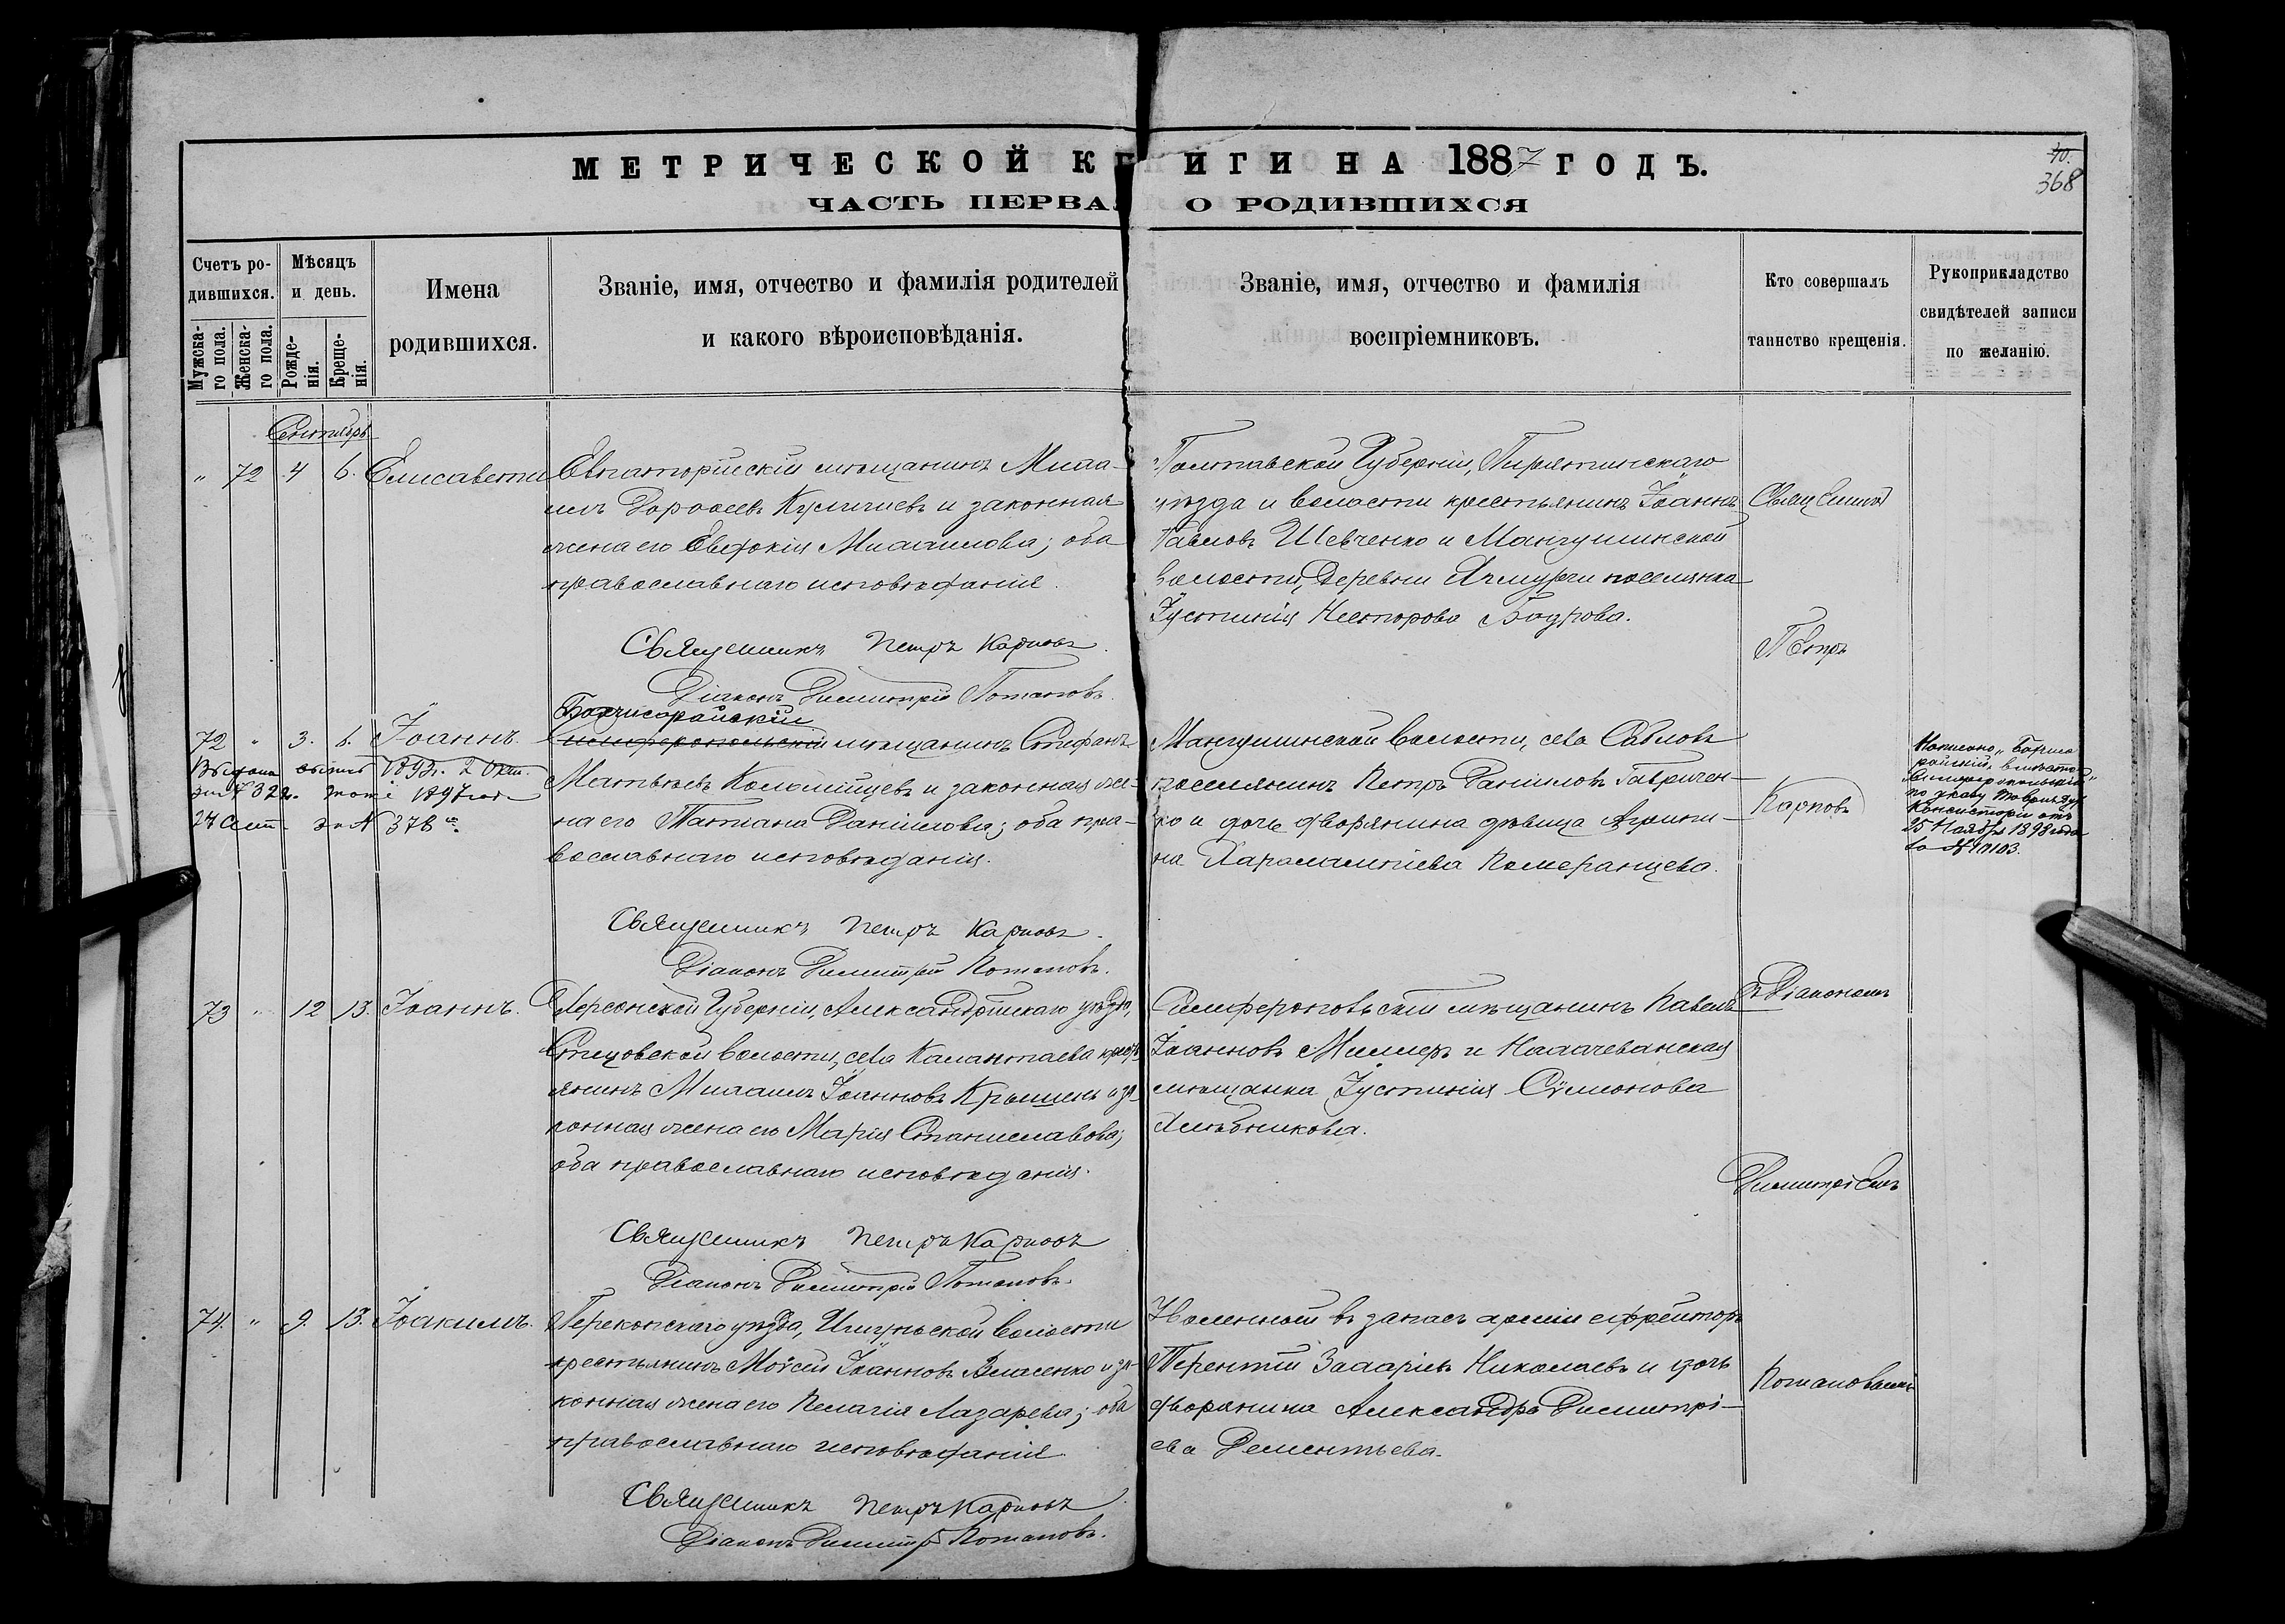 МЕТРИЧЕСКОЙ К ИГИ НА 1887 ГОДЪ.
40.
368
ЧАСТЬ ПЕРВАЯ О РОДИВШИХСЯ
Счетъ ро-
дившихся.
Мужска-
го пола.
Женска-
го пола.
Мѣсяцъ
и день.
Рожде-
нія.
Креще-
нія.
Имена
родившихся.
Званіе, имя, отчество и фамилія родителей
и какого вѣроисповѣданія.
Званіе, имя, отчество и фамилія
воспріемниковъ.
Кто совершалъ
таинство крещенія.
Рукоприкладство
свидѣтелей записи
по желанію.
Сентябрь
" 72 4 6. Елисавета
Евпаторійскій мѣщанинъ Миха-
илъ Дороѳеевъ и законная
жена его Евдокія Михаилова; оба
православнаго исповѣданія.
Священникъ Петръ Карповъ.
Діаконъ Димитрій Потаповъ.
Полтавской Губерніи, Пирятинскаго
уѣзда и волости крестьянинъ Іоаннъ
Павловъ Шевченко и Мангушинской
волости, деревни поселянка
Іустинія Несторова Бодрова.
72 " 3. 6. Іоаннъ.
Выдана выпись 1893 г. 2 Окт.
за № 322. тоже 1897 года
24 Сент. за № 378
Бахчисарайскій
Симферопольскій мѣщанинъ Стефанъ
Матвѣевъ Коломійцевъ и законная же-
на его Татіана Даніилова; оба пра-
вославнаго исповѣданія.
Священникъ Петръ Карповъ.
Діаконъ Димитрій Потаповъ.
Мангушинской волости, села Сабловъ
поселянинъ Петръ Даніиловъ Гавричен-
ко и дочь дворянина дѣвица Агрипи-
на Харалампіева Померанцева.
Написано "Бахчиса
райскій" вмѣсто
"Симферопольскій"
по указу Таврич. Дух.
Консисторіи отъ
25 Ноября 1898 года
за № 11103.
73 " 12 13. Іоаннъ.
Херсонской Губерніи, Александрійскаго уѣзда,
Стецовской волости, села Калантаева крестъ
янинъ Михаилъ Іоанновъ и за-
конная жена его Марія Станиславова;
оба православнаго исповѣданія.
Священникъ Петръ Карповъ
Діаконъ Димитрій Потаповъ.
Симферопольскій мѣщанинъ Павелъ
Іоанновъ Миллеръ и Нахичеванская
мѣщанка Іустинія Сѵмеонова
Хлѣбникова.
74. " 9. 13. Іоакимъ.
Перекопскаго уѣзда, Ишуньской волости
крестьянинъ Моѵсей Іоанновъ Власенко и за-
конная жена его Пелагія Лазарева; оба
православнаго исповѣданія.
Священникъ Петръ Карповъ
Діаконъ Димитрій Потаповъ.
Уволенный въ запасъ арміи ефрейторъ
Терентій Захаріевъ Николаевъ и дочь
дворянина Александра Димитрі-
ева Дементьева.
Священникъ
Петръ
Карповъ
съ Діакономъ
Димитріемъ
Потаповымъ